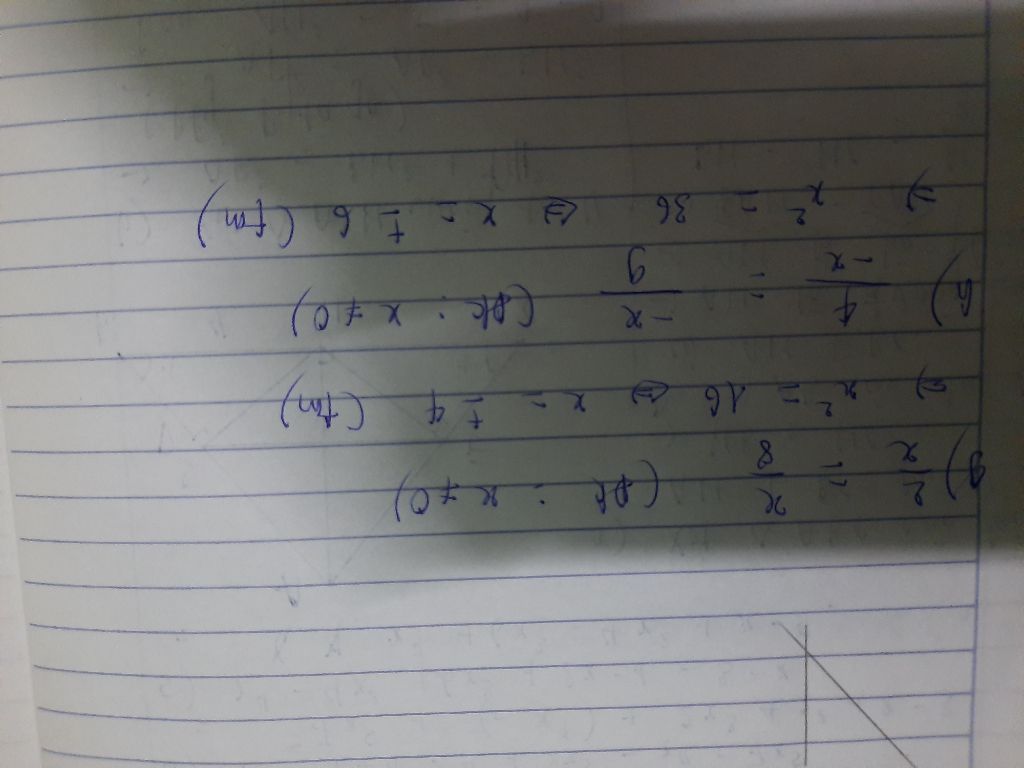 g) 2/x = x/8 (đk : x ≠ 0)
=> x² = 16 <=> x = ± 4 (tm)
h) 4/-x = -x/9 (đk : x ≠ 0)
=> x² = 36 <=> x = ± 6 (tm)